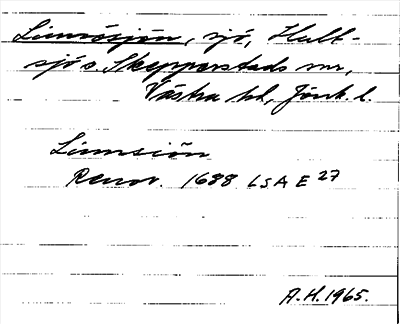 Linnesjön, sjö, Hult-
sjö s. Skepperstads snr,
Västra hd, Jönk. l.
Linnesiön
Renov. 1688 LSA E 27
A.H. 1965.